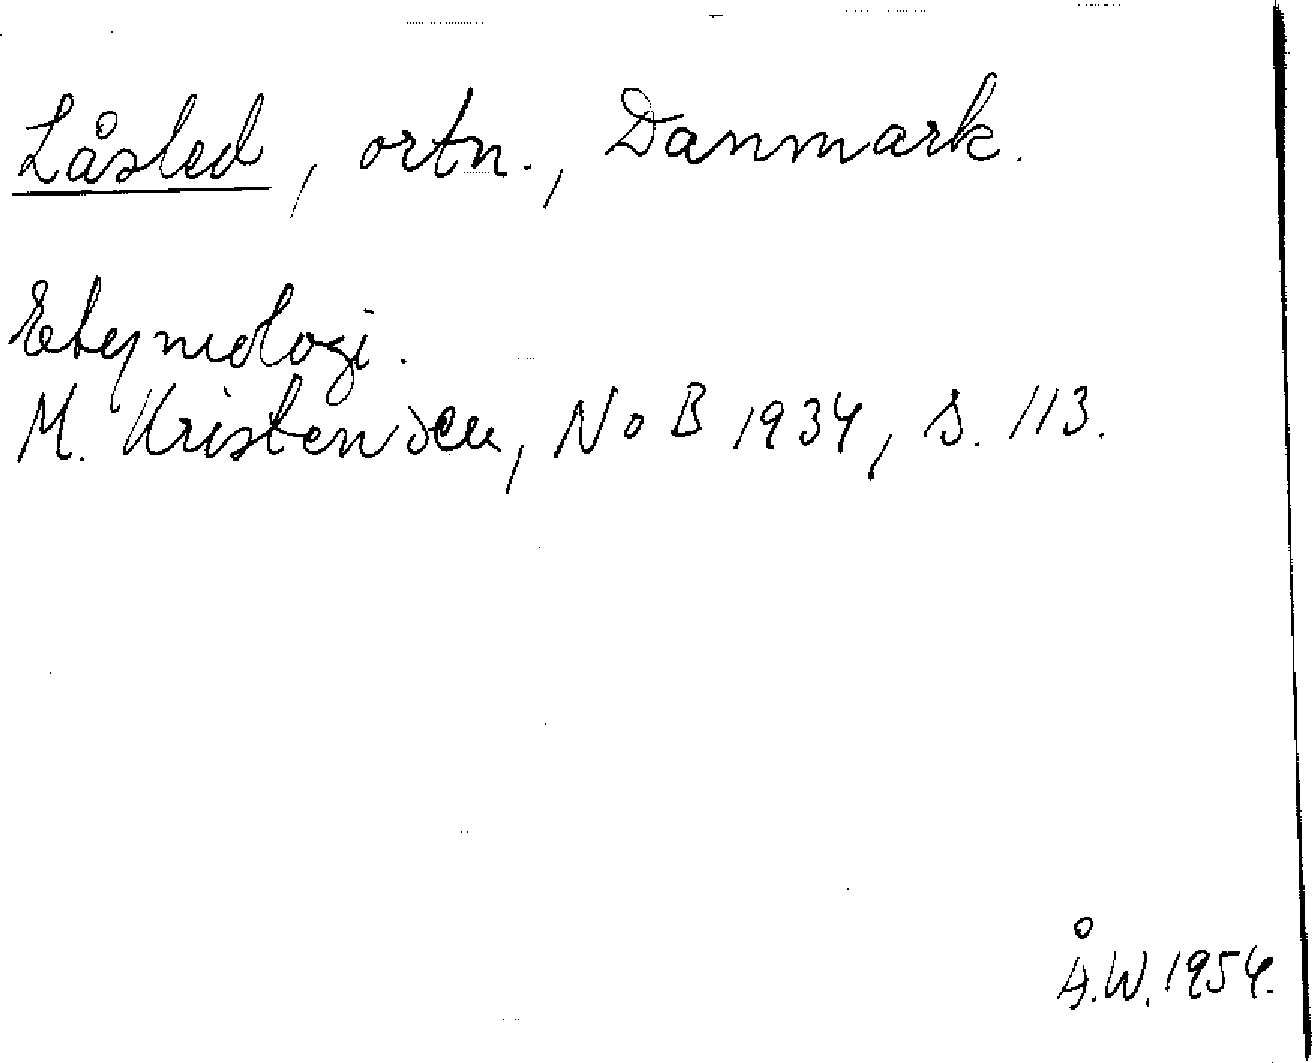 Låsled, ortn., Danmark.
Etymologi.
M. Kristensen, NoB 1934, s. 113.
Å.W. 1954.